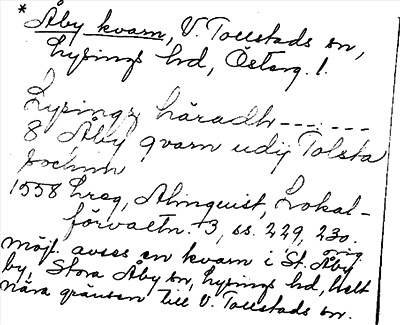 * Åby kvarn, V. Tollstads sn,
Lysings hd, Österg. l.
Lysingz häradh------
8 Åby qvarn udij Tolsta
sochnn
1558 Lreg, Almquist, Lokal-
förvaltn. 3, ss. 229, 230 orig.
Möjl. avses en kvarn i St. Åby
by, Stora Åby sn, Lysings hd, helt
nära gränsen till V. Tollstads sn.